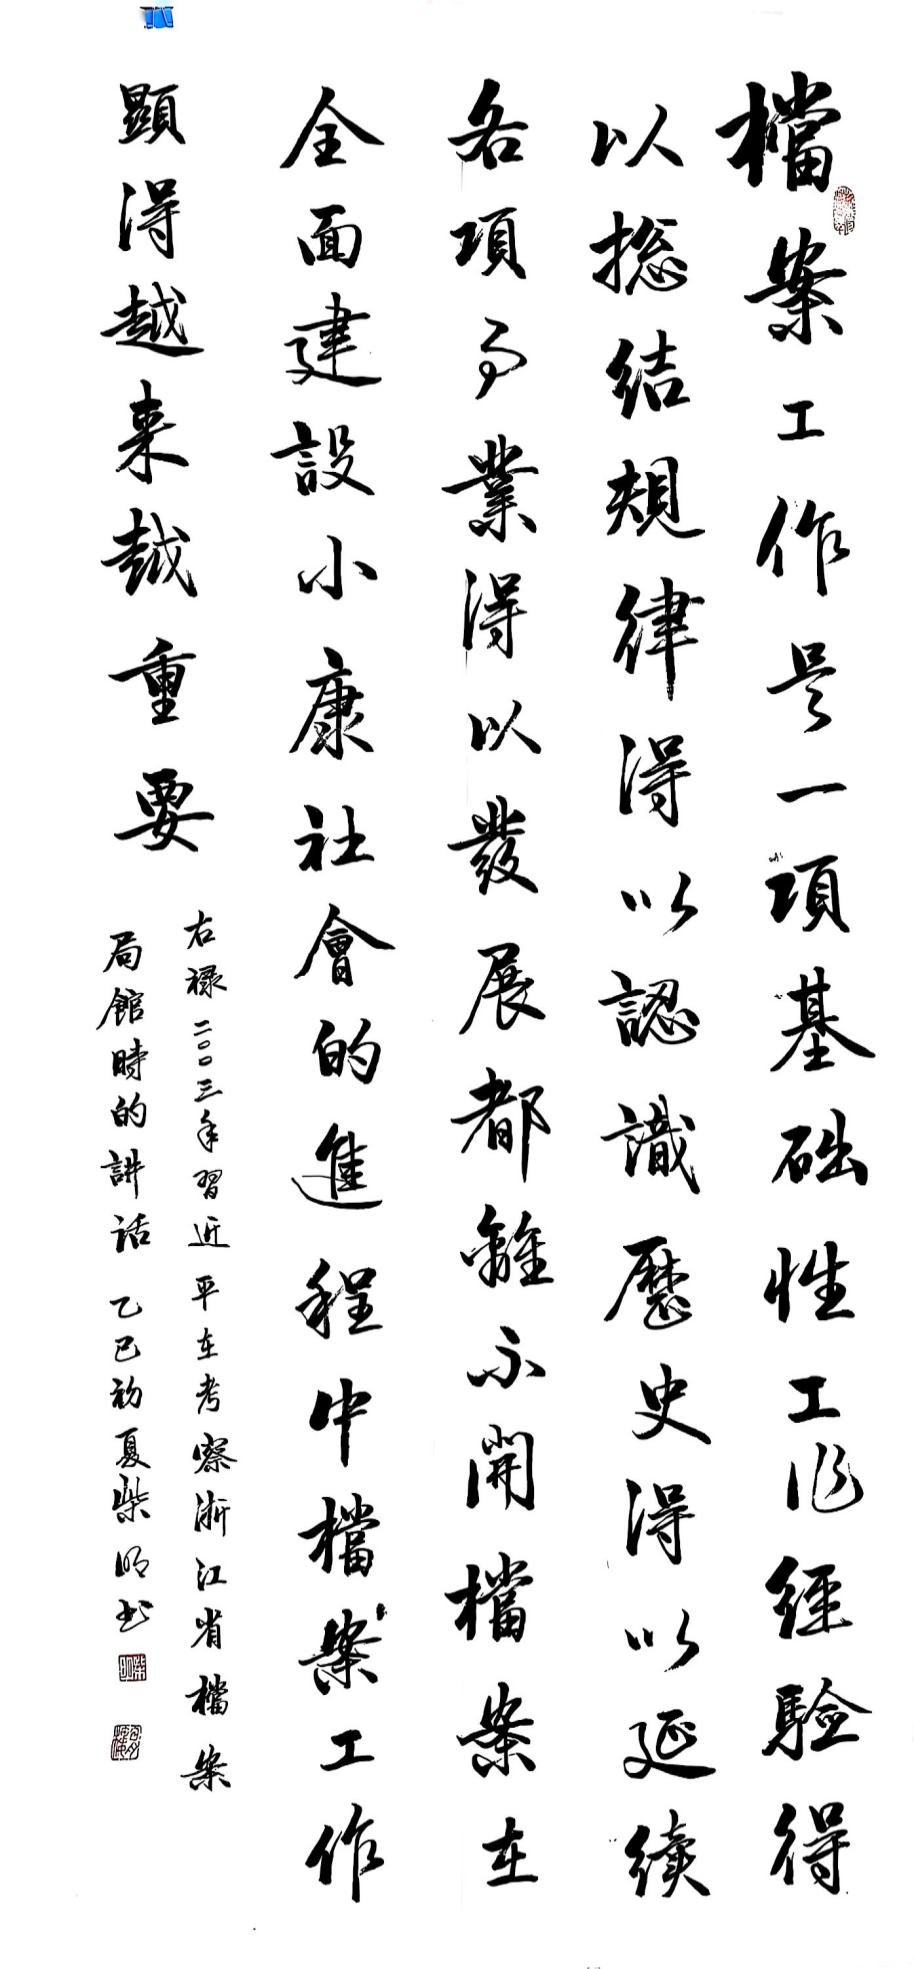 檔案工作是一項基础性工作經驗得
以捴結規律得以認識歷史得以延續
各項事業得以發展都離不開檔案在
全面建設小康社會的進程中檔案工作
顯得越来越重要
右禄二〇〇三年習近平在考察浙江省檔案
局館時的講话乙巳初夏柴明书